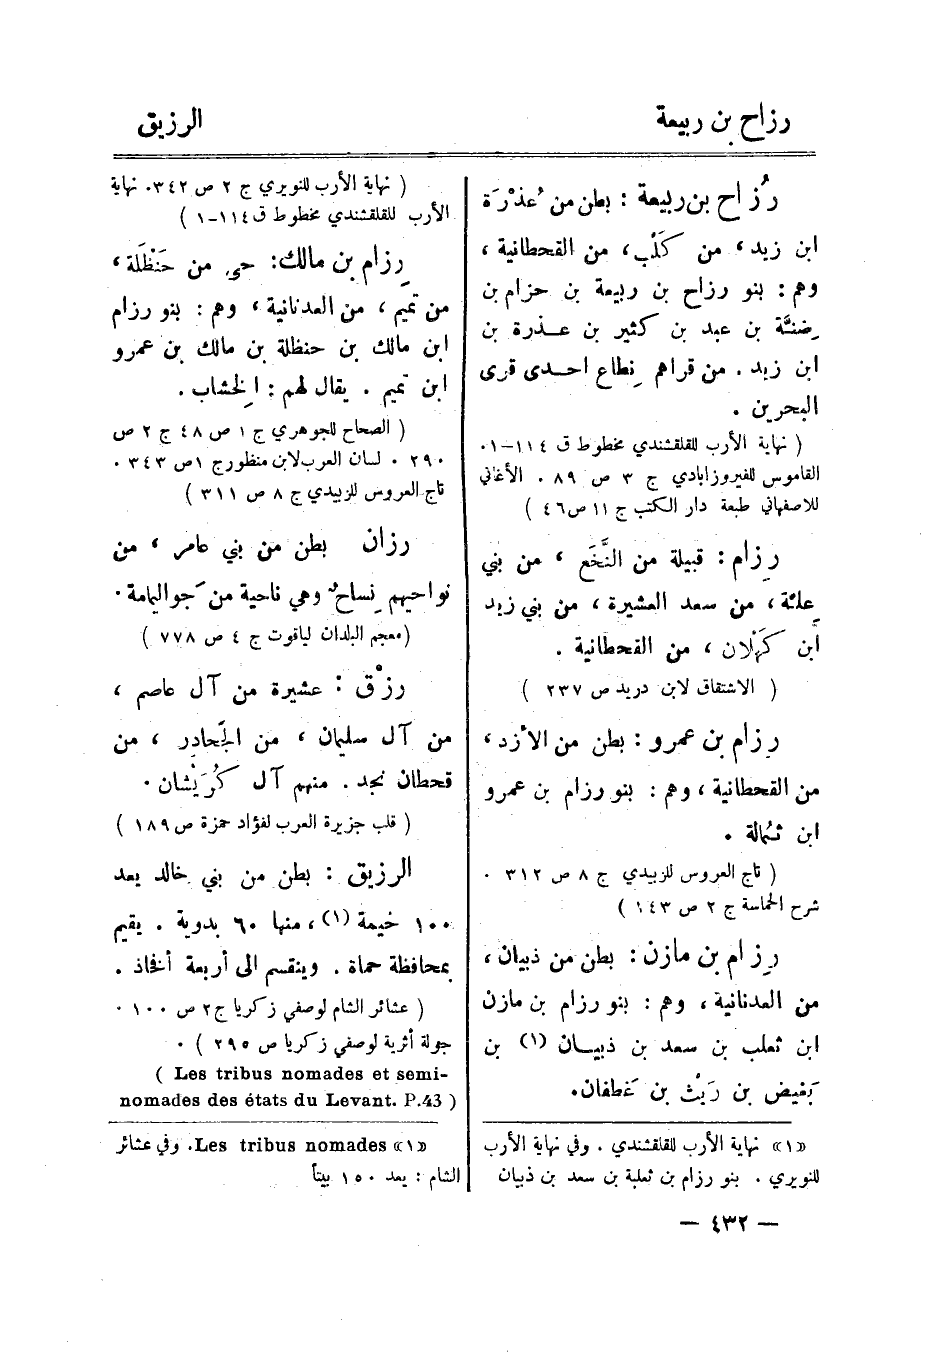 رزاح بن ربيعة
الرزيق
رُزاح بن ربيعة : بطن من عُذْرَة
ابن زيد ، من كَلْب ، من القحطانية ،
وهم : بنو رزاح بن ربيعة بن حزام بن
ضِنَّة بن عبد بن كثير بن عذرة بن
ابن زيد . من قراهم نِطاع احدى قرى
البحرين .
( نهاية الأرب للقلقشندي مخطوط ق ١١٤-١.
القاموس للفيروزابادي ج ٣ ص ٨٩ . الأغاني
للاصفهاني طبعة دار الكتب ج ١١ ص ٤٦ )
رِزام : قبيلة من النَّخَع ، من بني
عِلَة ، من سعد العشيرة ، من بني زيد
ابن كَهْلان ، من القحطانية .
( الاشتقاق لابن دريد ص ٢٣٧ )
رِزام بن عمرو : بطن من الأزد ،
من القحطانية ، وهم : بنو رزام بن عمرو
ابن ثُمالة .
( تاج العروس للزبيدي ج ٨ ص ٣١٢ .
شرح الحماسة ج ٢ ص ١٤٣ )
رِزام بن مازن : بطن من ذبيان ،
من العدنانية ، وهم : بنو رزام بن مازن
ابن ثعلب بن سعد بن ذبيان (١) بن
بَغيض بن رَيْث بن غَطفان.
«١» نهاية الأرب للقلقشندي . وفي نهاية الأرب
للنويري . بنو رزام بن ثعلبة بن سعد بن ذبيان
( نهاية الأرب للنويري ج ٢ ص ٣٤٢. نهاية
الأرب للقلقشندي مخطوط ق ١١٤-١ )
رِزام بن مالك: حي من حَنْظَلة ،
من تميم ، من العدنانية ، وهم : بنو رزام
ابن مالك بن حنظلة بن مالك بن عمرو
ابن تميم . يقال لهم : الخِشاب .
( الصحاح للجوهري ج ١ ص ٤٨ ج ٢ ص
٢٩٠ . لسان العرب لابن منظور ج ١ ص ٣٤٣ .
تاج العروس للزبيدي ج ٨ ص ٣١١ )
رزان بطن من بني عامر ، من
نواحيهم نِساح وهي ناحية من جَو اليمامة .
(معجم البلدان لياقوت ج ٤ ص ٧٧٨ )
رزْق : عشيرة من آل عاصم ،
من آل سليمان ، من الجَحادِر ، من
قحطان نجد . منهم آل كُرَيْشان .
( قلب جزيرة العرب لفؤاد حمزة ص ١٨٩ )
الرزيق : بطن من بني خالد يعد
١٠٠ خيمة (١) ، منها ٦٠ بدوية . يقيم
بمحافظة حماة . وينقسم الى أربعة أفخاذ .
( عشائر الشام لوصفي زكريا ج ٢ ص ١٠٠ .
جولة أثرية لوصفي زكريا ص ٢٩٥ ) .
( Les tribus nomades et semi-
nomades des états du Levant. P.43 )
«١» Les tribus nomades. وفي عشائر
الشام : يعد ١٥٠ بيتاً
— ٤٣٢ —